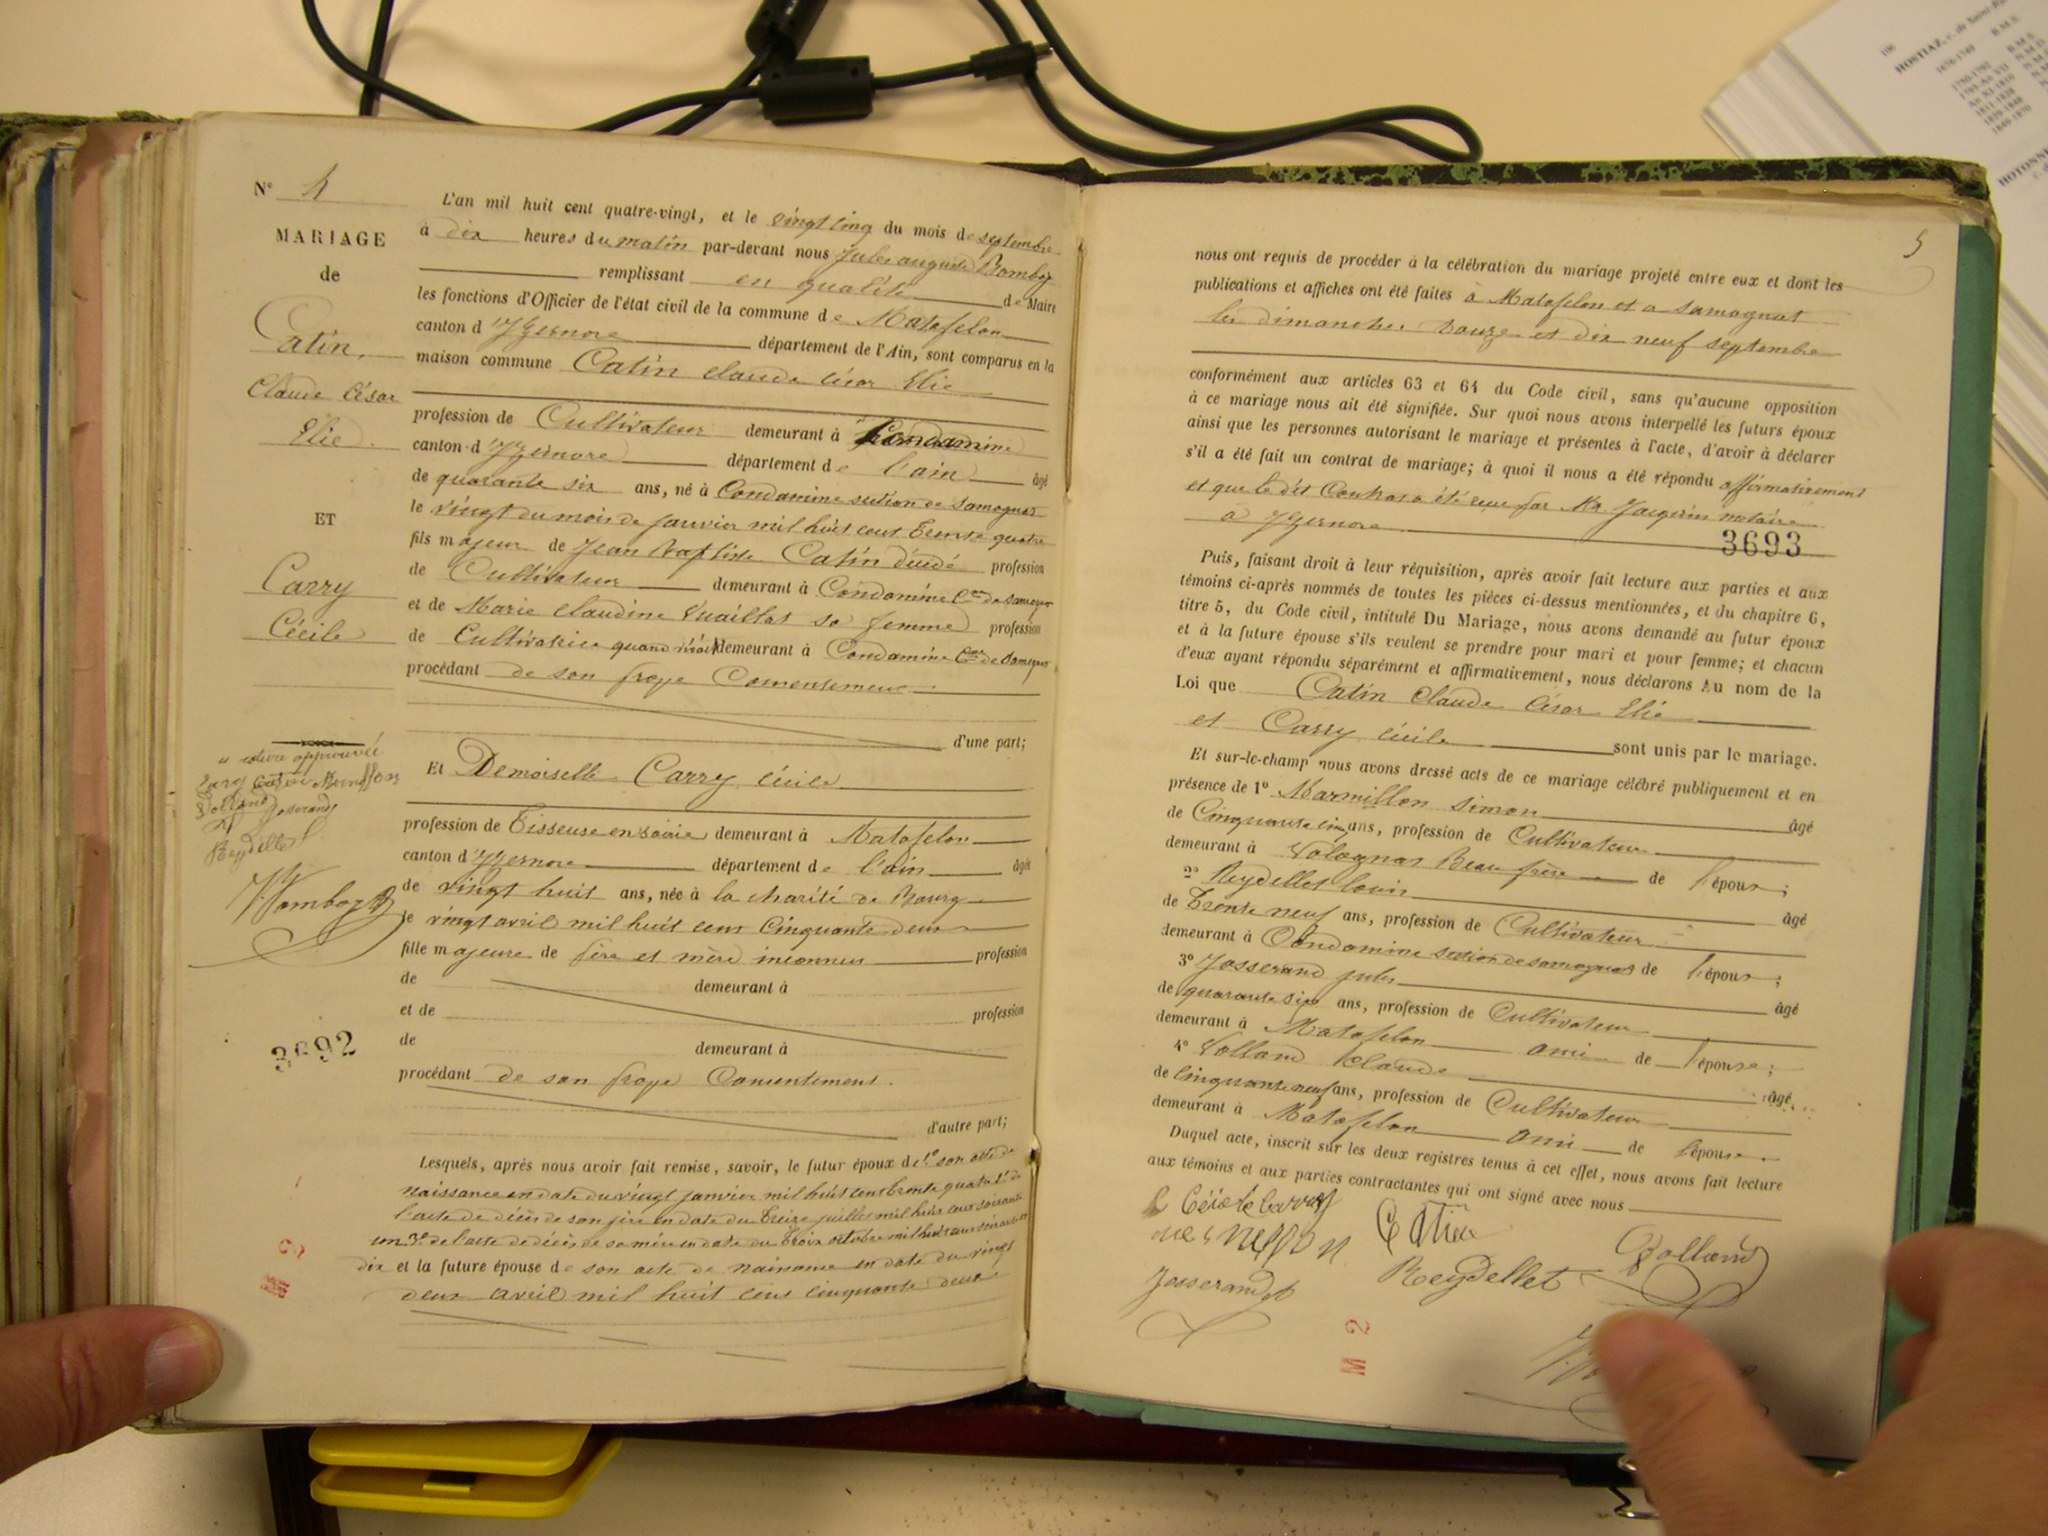 N° 4
MARIAGE
de
Catin,
Claude César
Elie.
ET
Carry
Cécile
rature approuvée
Josserand
Reydellet
3692
L'an mil huit cent quatre-vingt, et le vingt cinq du mois de septembre
à dix heures du matin par-devant nous Jules auguste Bomboy
remplissant en qualité de Maire
les fonctions d'Officier de l'état civil de la commune de Matafelon
canton d'Yzernore département de l'Ain, sont comparus en la
maison commune Catin claude César Elie
profession de Cultivateur demeurant à Condamine
canton d'Yzernore département de l'ain âgé
de quarante six ans, né à Condamine section de Samognat
le vingt du mois de janvier mil huit cent trente quatre
fils majeur de Jean Baptiste Catin décédé profession
de Cultivateur demeurant à Condamine Cne de Samognat
et de Marie Claudine Vuaillat sa femme profession
de Cultivatrice quand vivait demeurant à Condamine Cne de Samognat
procédant de son propre Consentement
d'une part;
Et Demoiselle Carry Cécile
profession de Tisseuse en soirie demeurant à Matafelon
canton d'Yzernore département de l'ain âgée
de vingt huit ans, née à la charité de Bourg
le vingt avril mil huit cent cinquante deux
fille majeure de père et mère inconnus profession
de demeurant à
et de profession
de demeurant à
procédant de son propre Consentement.
d'autre part;
Lesquels, après nous avoir fait remise, savoir, le futur époux de 1° son acte de
naissance en date du vingt janvier mil huit cent trente quatre 2° de
l'acte de décès de son père en date du treize juillet mil huit cent soixante
un 3° de l'acte de décès de sa mère en date du trois octobre mil huit cent soixante
dix et la future épouse de son acte de naissance en date du vingt
deux avril mil huit cent cinquante deux
M 2
5
nous ont requis de procéder à la célébration du mariage projeté entre eux et dont les
publications et affiches ont été faites à Matafelon et a Samognat
les dimanches douze et dix neuf septembre
conformément aux articles 63 et 64 du Code civil, sans qu'aucune opposition
à ce mariage nous ait été signifiée. Sur quoi nous avons interpellé les futurs époux
ainsi que les personnes autorisant le mariage et présentes à l'acte, d'avoir à déclarer
s'il a été fait un contrat de mariage; à quoi il nous a été répondu affirmativement
et que le dit Contrat a été reçu par Me Jacquin notaire
a Yzernore
3693
Puis, faisant droit à leur réquisition, après avoir fait lecture aux parties et aux
témoins ci-après nommés de toutes les pièces ci-dessus mentionnées, et du chapitre 6,
titre 5, du Code civil, intitulé Du Mariage, nous avons demandé au futur époux
et à la future épouse s'ils veulent se prendre pour mari et pour femme; et chacun
d'eux ayant répondu séparément et affirmativement, nous déclarons au nom de la
Loi que Catin Claude César Elie
et Carry Cécile sont unis par le mariage.
Et sur-le-champ nous avons dressé acte de ce mariage célébré publiquement et en
présence de 1° Marmillon Simon âgé
de Cinquante cinq ans, profession de Cultivateur
demeurant à Volognat Beau frère de l'époux;
2° Reydellet Louis âgé
de trente neuf ans, profession de Cultivateur
demeurant à Condamine section de samognat de l'époux;
3° Josserand jules âgé
de quarante six ans, profession de Cultivateur
demeurant à Matafelon ami de l'épouse;
4° Volland Claude âgé
de cinquante neuf ans, profession de Cultivateur
demeurant à Matafelon ami de l'épouse
Duquel acte, inscrit sur les deux registres tenus à cet effet, nous avons fait lecture
aux témoins et aux parties contractantes qui ont signé avec nous
Catin
Volland
Josserand
Reydellet
M 2
196
HOSTIAZ,